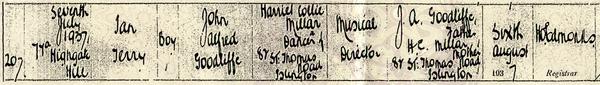 207.
Seventh
July
1937
77a
Highgate
Hill
Ian
Terry
Boy
John
Alfred
Goodliffe
Harriet Collie
Millar
87 St. Thomas
Road
Islington
Musical
Director
J. A. Goodliffe,
Father
H.C. Millar
Mother
87 St. Thomas Road
Islington
Sixth
August
1937
Registrar